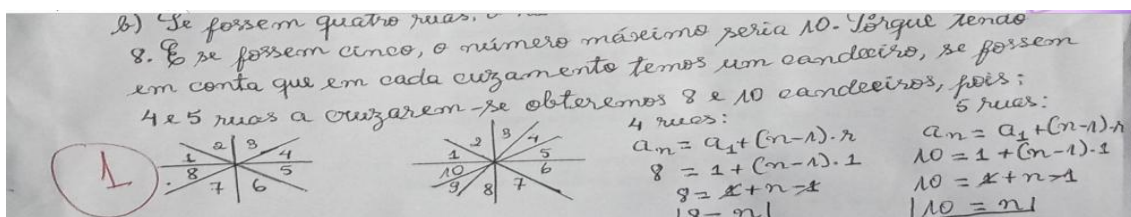 b) Se fossem quatro ruas,
8. E se fossem cinco, o número máximo seria 10. Porque tendo
em conta que em cada cuzamento temos um candeeiro, se fossem
4 e 5 ruas a cruzarem-se obteremos 8 e 10 candeeiros, pois:
4 ruas:
5 ruas:
1
1 2 3 4 5 6 7 8
1 2 3 4 5 6 7 8 9 10
an = a1+(n-1)·r
8 = 1+(n-1)·1
8 = 1+n-1
8 = n
an = a1+(n-1)·r
10 = 1+(n-1)·1
10 = 1+n-1
10 = n